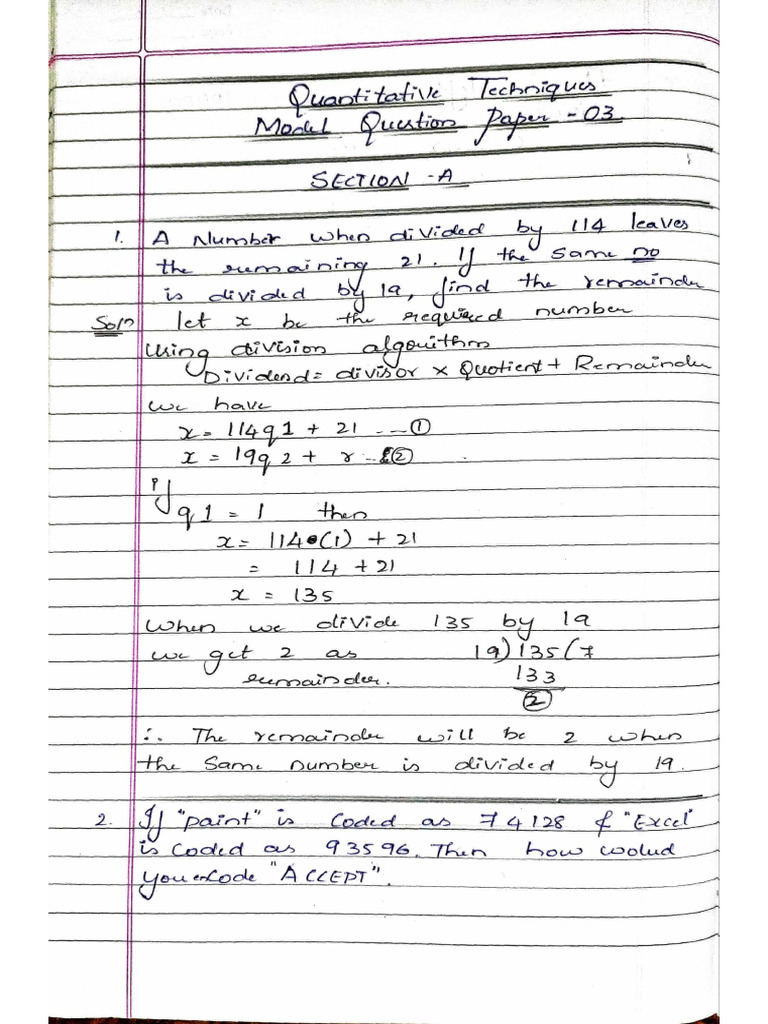 Quantitative Techniques
Model Question Paper - 03
SECTION - A
1. A Number when divided by 114 leaves
the remaining 21. If the same no
is divided by 19, find the remainder
Soln let x be the required number
Using division algorithm
Dividend = divisor × Quotient + Remainder
we have
x = 114q1 + 21 --- ①
x = 19q2 + r -- ②
if
q1 = 1 then
x = 114•(1) + 21
= 114 + 21
x = 135
When we divide 135 by 19
we get 2 as 19) 135 (7
remainder. 133
2
∴ The remainder will be 2 when
the same number is divided by 19.
2. If "paint" is coded as 74128 & "Excel"
is coded as 93596. Then how
you encode "ACCEPT".